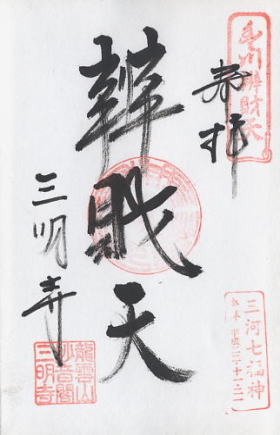 豊川辨財天
奉拝
三河七福神
辨財天
三明寺
龍雲山
妙音閣
三明寺